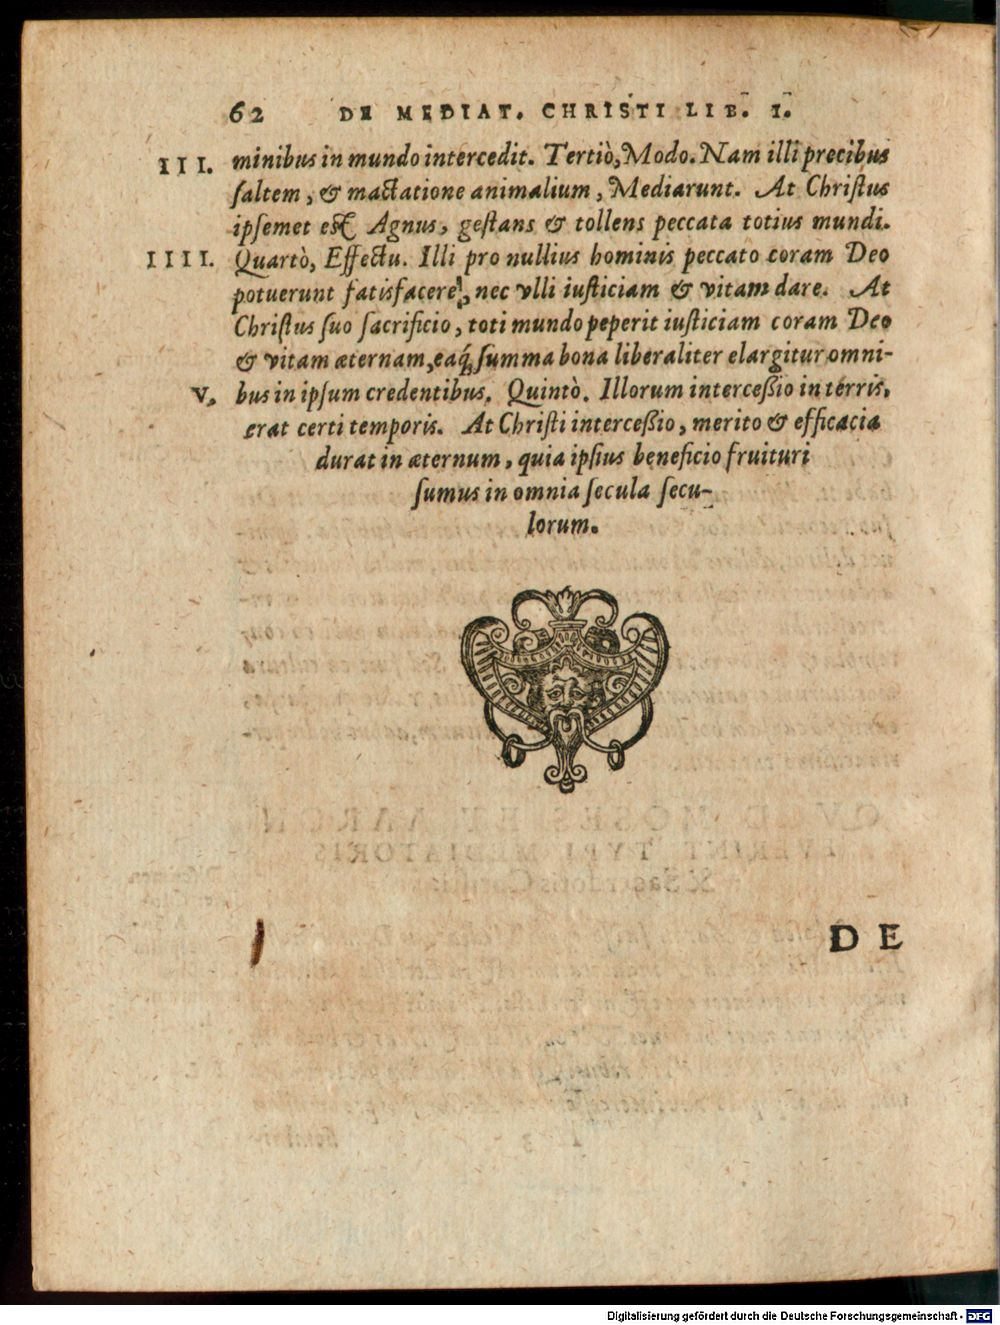 62 DE MEDIAT. CHRISTI LIB. I.
III. minibus in mundo intercedit. Tertiò, Modo. Nam illi precibus
saltem, & mactatione animalium, Mediarunt. At Christus
ipsemet est Agnus, gestans & tollens peccata totius mundi.
IIII. Quartò, Effectu. Illi pro nullius hominis peccato coram Deo
potuerunt satisfacere, nec vlli iusticiam & vitam dare. At
Christus suo sacrificio, toti mundo peperit iusticiam coram Deo
& vitam æternam, eaq́; summa bona liberaliter elargitur omni-
V. bus in ipsum credentibus. Quintò. Illorum intercessio in terris,
erat certi temporis. At Christi intercessio, merito & efficacia
durat in æternum, quia ipsius beneficio fruituri
sumus in omnia secula secu-
lorum.
DE
Digitalisierung gefördert durch die Deutsche Forschungsgemeinschaft - DFG